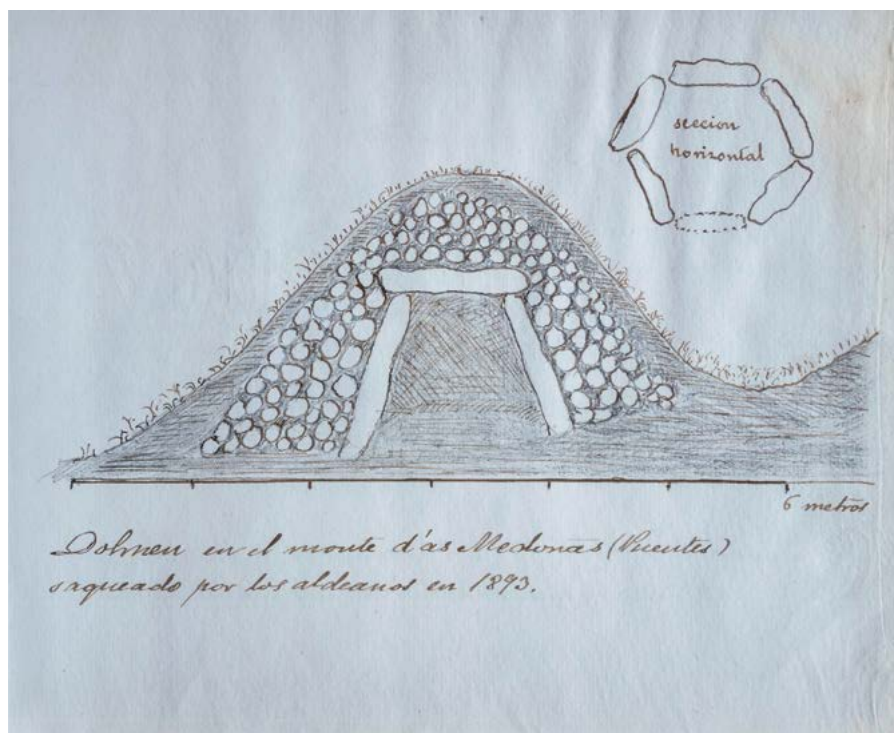 seccion
horizontal
6 metros
Dolmen en el monte d'as Medoñas (Puentes)
saqueado por los aldeanos en 1893.